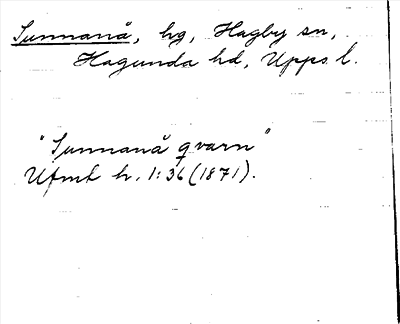 Sunnanå, hg, Hagby sn,
Hagunda hd, Upps l.
"Sunnanå qvarn"
Ufmt h. 1:36 (1871).